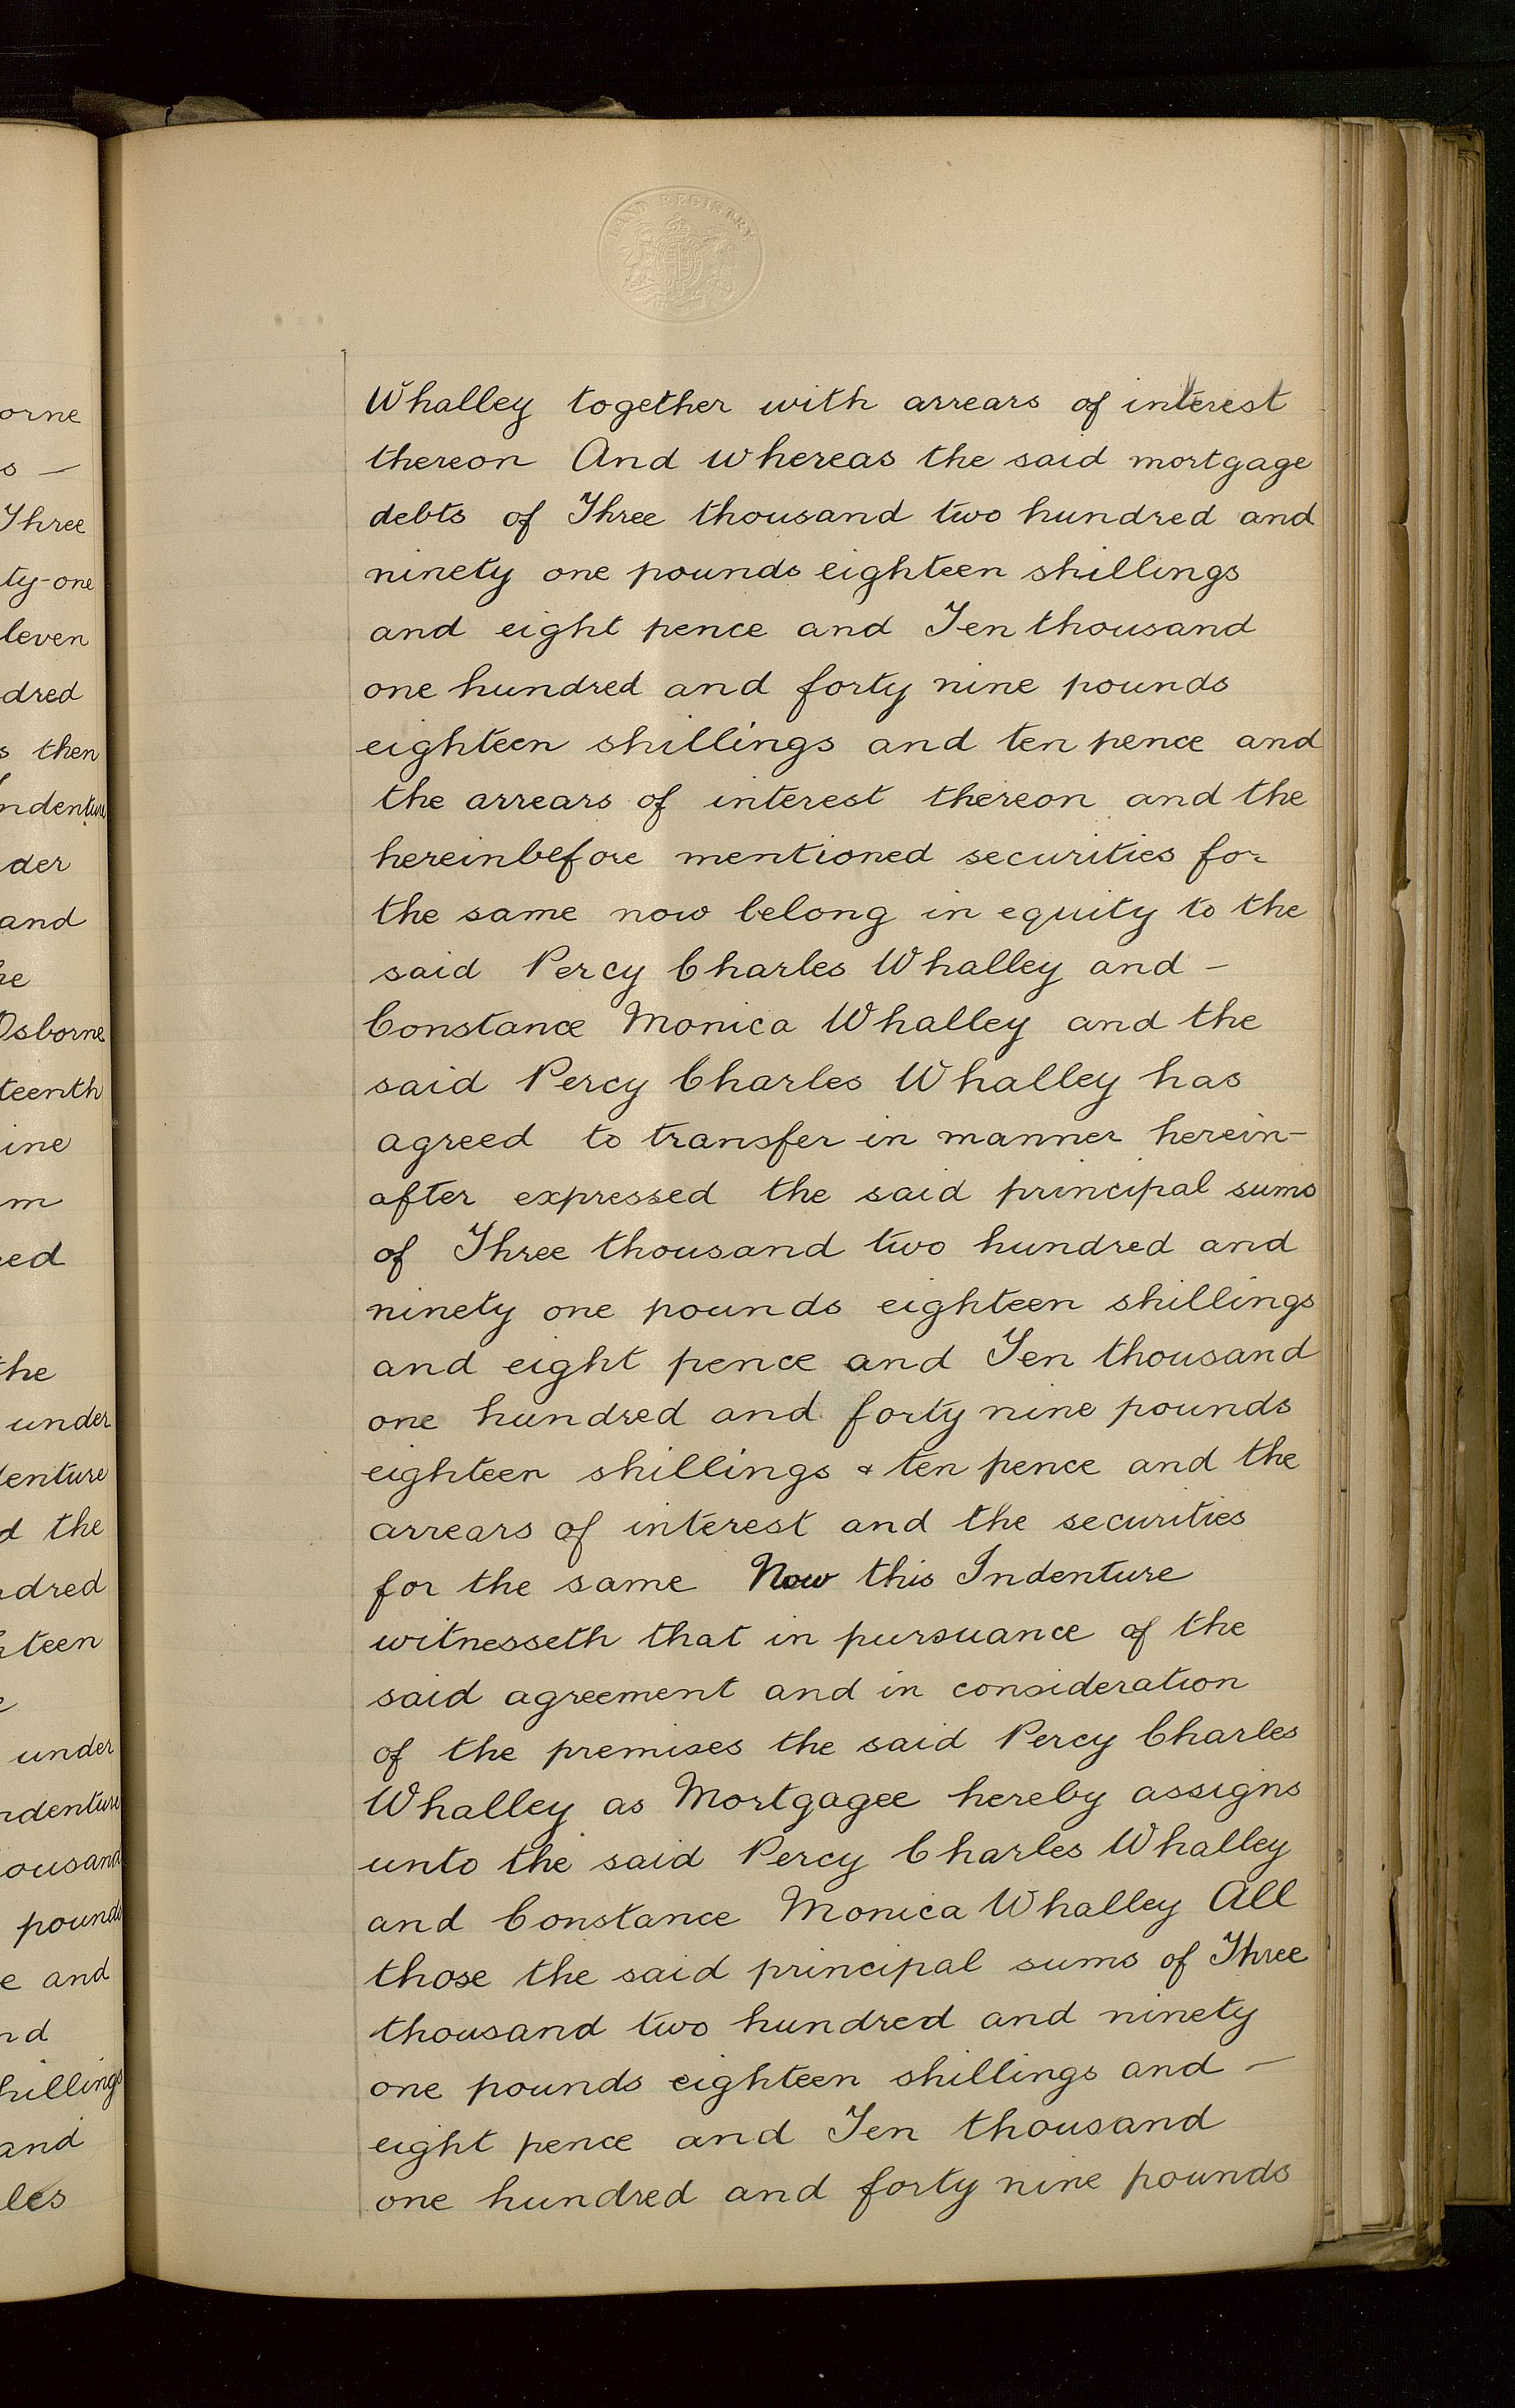 LAND REGISTRY
orne
s —
Three
ty-one
leven
dred
s then
ndenture
der
and
he
Osborne
teenth
ine
m
ed
the
under
denture
d the
ndred
hteen
e
under
ndenture
ousand
pounds
e and
nd
hillings
and
les
Whalley together with arrears of interest
thereon And whereas the said mortgage
debts of Three thousand two hundred and
ninety one pounds eighteen shillings
and eight pence and Ten thousand
one hundred and forty nine pounds
eighteen shillings and ten pence and
the arrears of interest thereon and the
hereinbefore mentioned securities for
the same now belong in equity to the
said Percy Charles Whalley and —
Constance Monica Whalley and the
said Percy Charles Whalley has
agreed to transfer in manner herein-
after expressed the said principal sums
of Three thousand two hundred and
ninety one pounds eighteen shillings
and eight pence and Ten thousand
one hundred and forty nine pounds
eighteen shillings & ten pence and the
arrears of interest and the securities
for the same Now this Indenture
witnesseth that in pursuance of the
said agreement and in consideration
of the premises the said Percy Charles
Whalley as Mortgagee hereby assigns
unto the said Percy Charles Whalley
and Constance Monica Whalley All
those the said principal sums of Three
thousand two hundred and ninety
one pounds eighteen shillings and —
eight pence and Ten thousand
one hundred and forty nine pounds